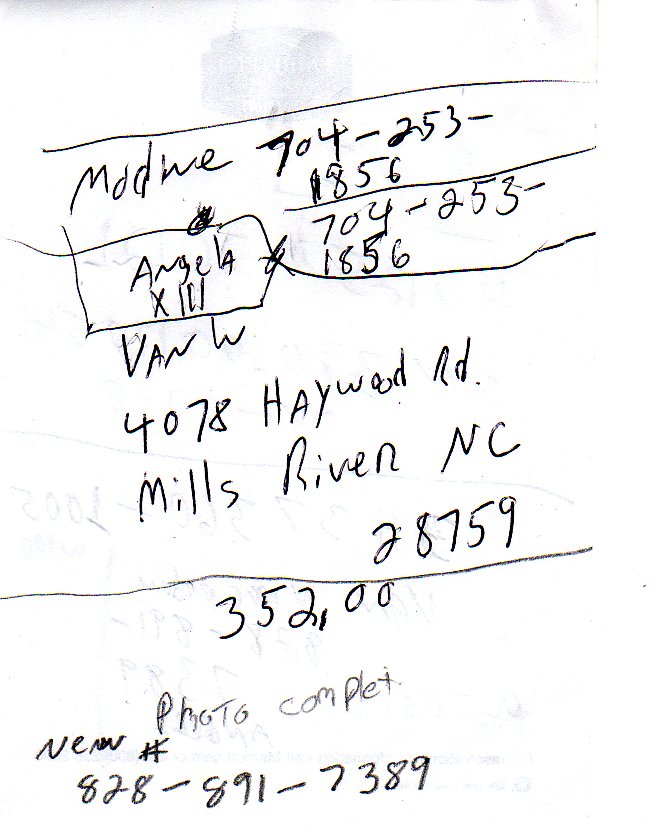 Modine 704-253-
1856
704-253-
1856
Angela
XIII
VAN W
4078 HAywood Rd.
Mills River NC
28759
352,00
PHOTO complet
New #
828-891-7389